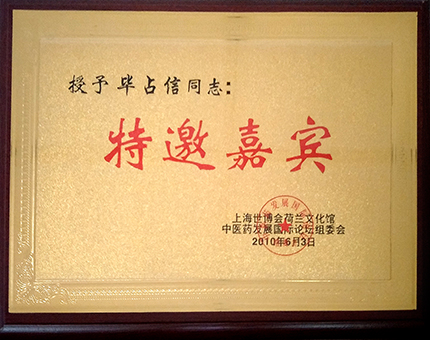 授予毕占信同志：
特邀嘉宾
上海世博会荷兰文化馆
中医药发展国际论坛组委会
2010年6月3日